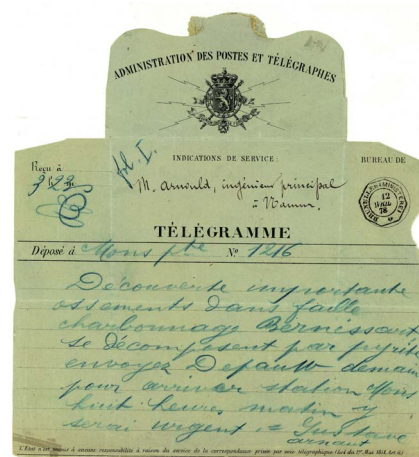 ADMINISTRATION DES POSTES ET TÉLÉGRAPHES
pl. I.
INDICATIONS DE SERVICE:
BUREAU DE
Reçu à
3h 23 m
M. Arnould, ingénieur principal
= Namur.
12
78
TÉLÉGRAMME
Déposé à Mons pte Nº 1216
Découverte importante
ossements dans faille
charbonnage Bernissart
se décomposent par pyrite
envoyez Depauw demain
pour arriver station Mons
huit heures matin y
serai urgent = Gustave
arnaut
L'État n'est soumis à aucune responsabilité à raison du service de la correspondance privée par voie télégraphique